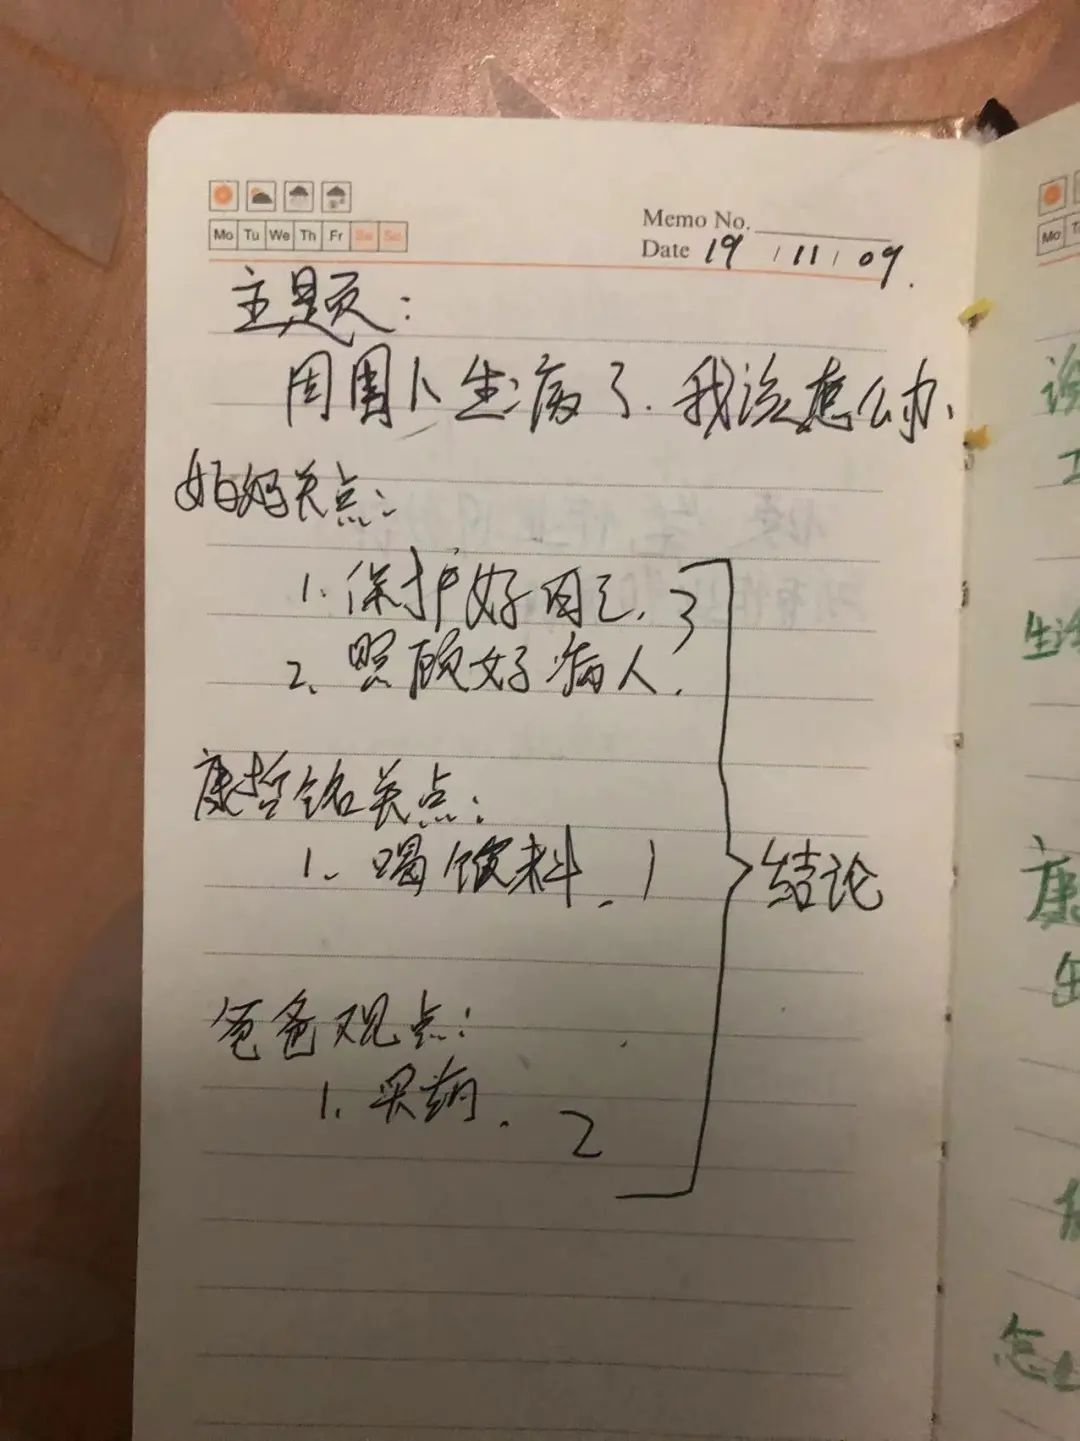 Mo Tu We Th Fr Sa Su
Memo No.
Date 19/11/09.
主题:
周围人生病了.我该怎么办、
妈妈关点:
1.保护好自己. 3
2、照顾好病人.
康哲铭关点:
1.喝饮料. 1
结论
爸爸观点:
1.买药. 2
Mo
康